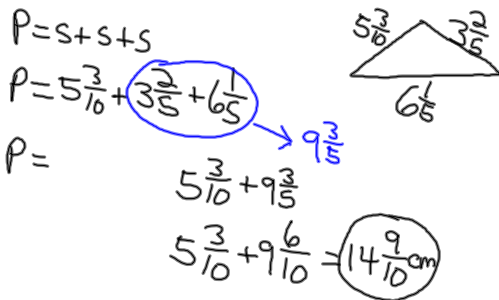 P=s+s+s
P=5 3/10+3 2/5+6 1/5
9 3/5
P=
5 3/10+9 3/5
5 3/10+9 6/10=14 9/10 cm
5 3/10
3 2/5
6 1/5